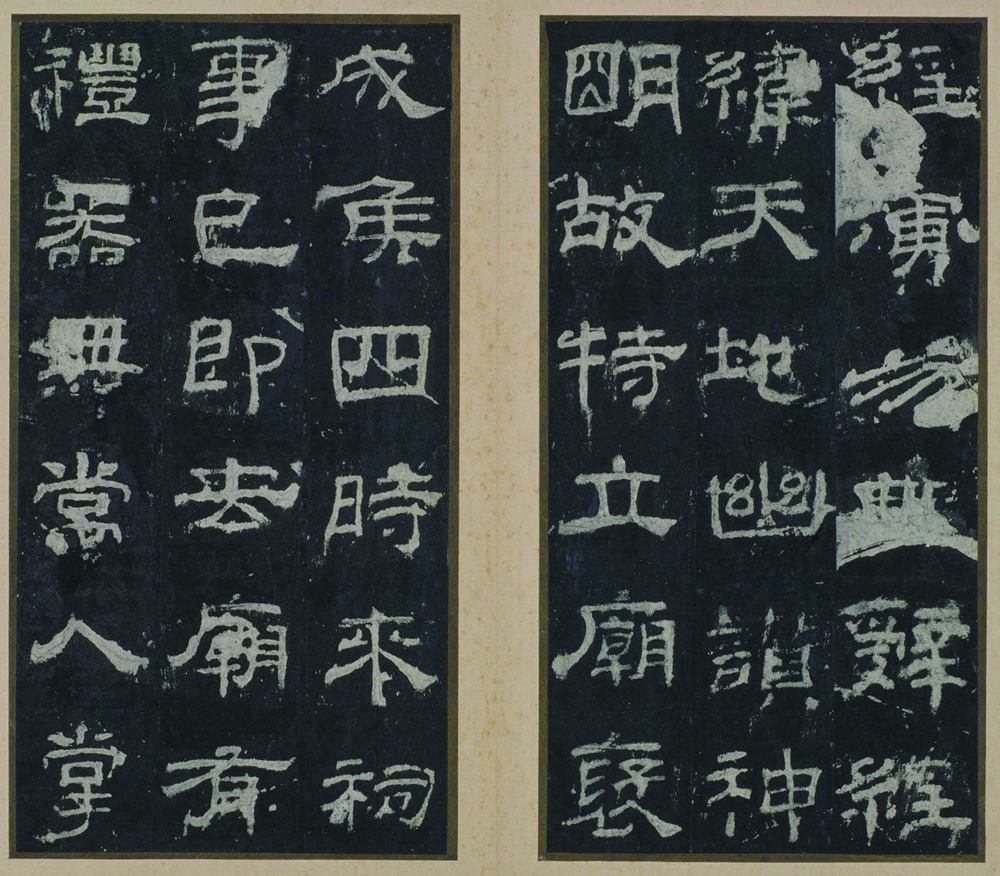 經演易辭經
緯天地幽讚神
朙故特立廟褒
成侯四時來祠
事已即去廟有
禮器無常人掌